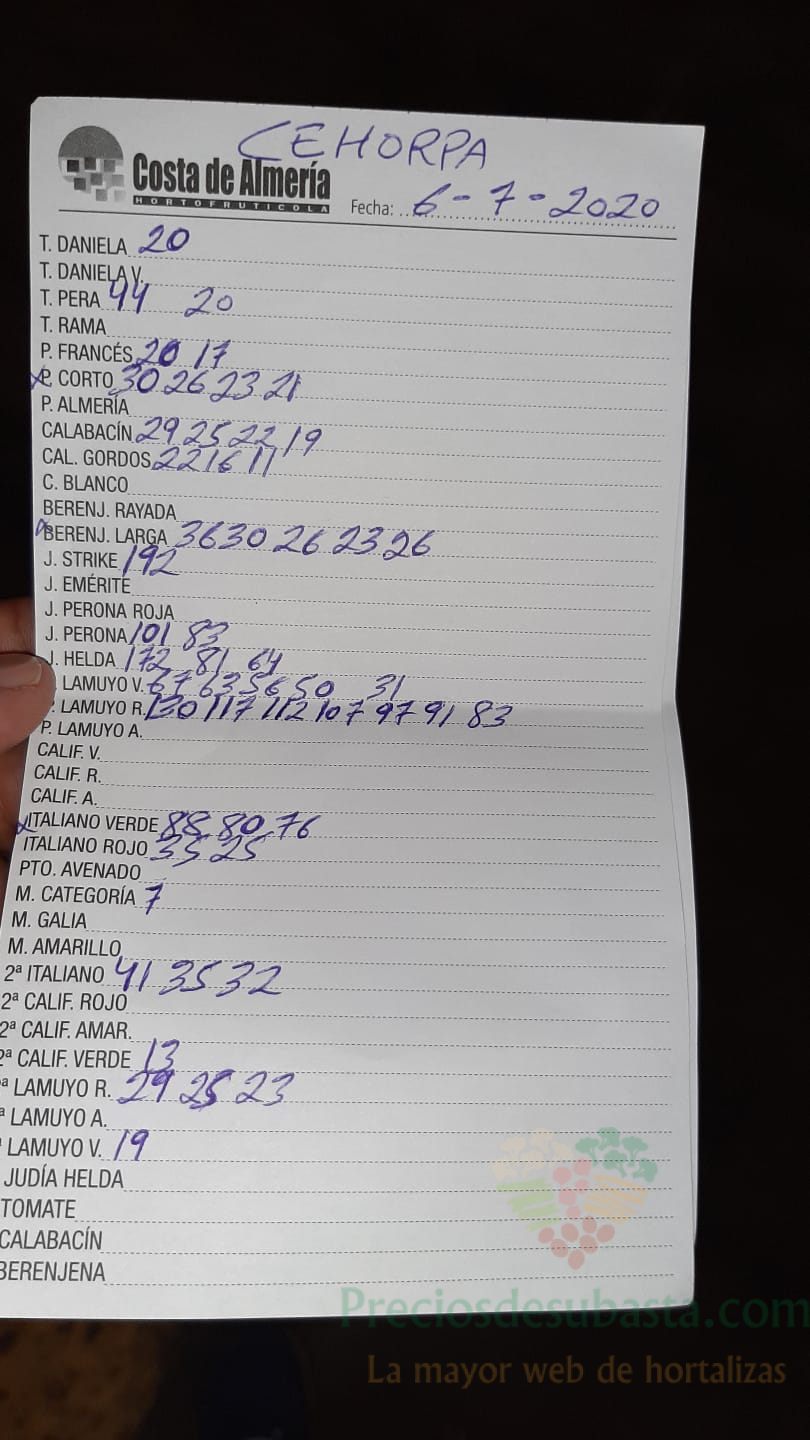 CEHORPA
Costa de Almería
HORTOFRUTICOLA
Fecha: 6-7-2020
T. DANIELA 20
T. DANIELA V.
T. PERA 44 20
T. RAMA
P. FRANCÉS 20 17
P. CORTO 30 26 23 21
P. ALMERÍA
CALABACÍN 29 25 22 19
CAL. GORDOS 22 16 11
C. BLANCO
BERENJ. RAYADA
BERENJ. LARGA 36 30 26 23 26
J. STRIKE 192
J. EMÉRITE
J. PERONA ROJA
J. PERONA 101 83
J. HELDA 172 81 64
LAMUYO V. 67 63 56 50 31
. LAMUYO R. 130 117 112 107 97 91 83
P. LAMUYO A.
CALIF. V.
CALIF. R.
CALIF. A.
ITALIANO VERDE 88 80 76
ITALIANO ROJO 35 25
PTO. AVENADO
M. CATEGORÍA 7
M. GALIA
M. AMARILLO
2ª ITALIANO 41 35 32
2ª CALIF. ROJO
2ª CALIF. AMAR.
2ª CALIF. VERDE 13
ª LAMUYO R. 29 25 23
ª LAMUYO A.
ª LAMUYO V. 19
JUDÍA HELDA
TOMATE
CALABACÍN
BERENJENA
Preciosdesubasta.com
La mayor web de hortalizas